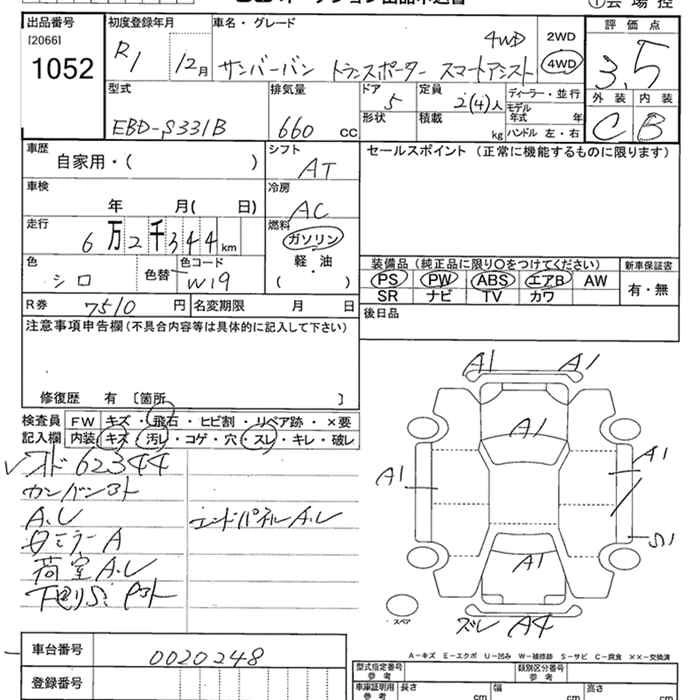 出品番号
[2066]
1052
初度登録年月
R1 12月
車名・グレード
4WD
サンバーバン トランスポーター スマートアシスト
2WD
4WD
評価点
3.5
外装 内装
C B
型式
EBD-S331B
排気量
660 cc
ドア
5
形状
定員
2(4)人
積載
kg
ディーラー・並行
モデル
年式 年
ハンドル 左・右
車歴
自家用・( )
シフト
AT
セールスポイント (正常に機能するものに限ります)
車検
年 月( 日)
冷房
AC
走行
6万2千344km
燃料
ガソリン
軽・油
( )
色
シロ
色替
色コード
W19
装備品 (純正品に限り○をつけてください)
PS PW ABS エアB AW
SR ナビ TV カワ
新車保証書
有・無
R券 7510 円
名変期限 月 日
後日品
注意事項申告欄(不具合内容等は具体的に記入して下さい)
修復歴 有 〔箇所 〕
検査員
記入欄
FW キズ・飛石・ヒビ割・リペア跡・×要
内装 キズ・汚レ・コゲ・穴・スレ・キレ・破レ
62344
A.U
エンドパネルA.U
ミラーA
荷室A.U
A1 A1
A1
A1
A1
S1
A1
ズレ A4
スペア
A-キズ E-エクボ U-凹み W-補修跡 S-サビ C-腐食 ××-交換済
車台番号
0020248
登録番号
型式指定番号
参考
類別区分番号
参考
車庫証明用
参考
長さ
cm
幅
cm
高さ
cm